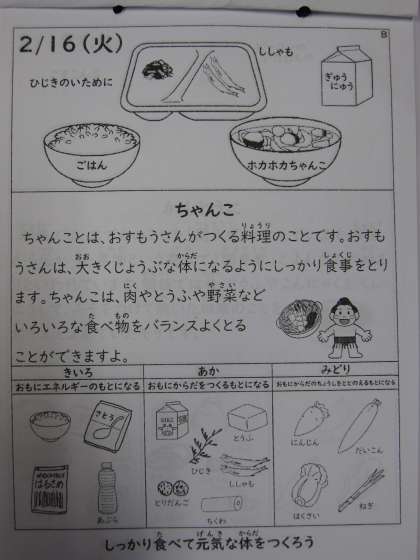 2/16(火)
B
ししゃも
ひじきのいために
ぎゅう
にゅう
ごはん
ホカホカちゃんこ
ちゃんこ
ちゃんことは、おすもうさんがつくる料理のことです。おすも
うさんは、大きくじょうぶな体になるようにしっかり食事をとり
ます。ちゃんこは、肉やとうふや野菜など
いろいろな食べ物をバランスよくとる
ことができますよ。
きいろ
おもにエネルギーのもとになる
さとう
はるさめ
あぶら
あか
おもにからだをつくるもとになる
とうふ
ひじき
ししゃも
とりだんご
ちくわ
みどり
おもにからだのちょうしをととのえるもとになる
にんじん
だいこん
はくさい
ねぎ
しっかり食べて元気な体をつくろう